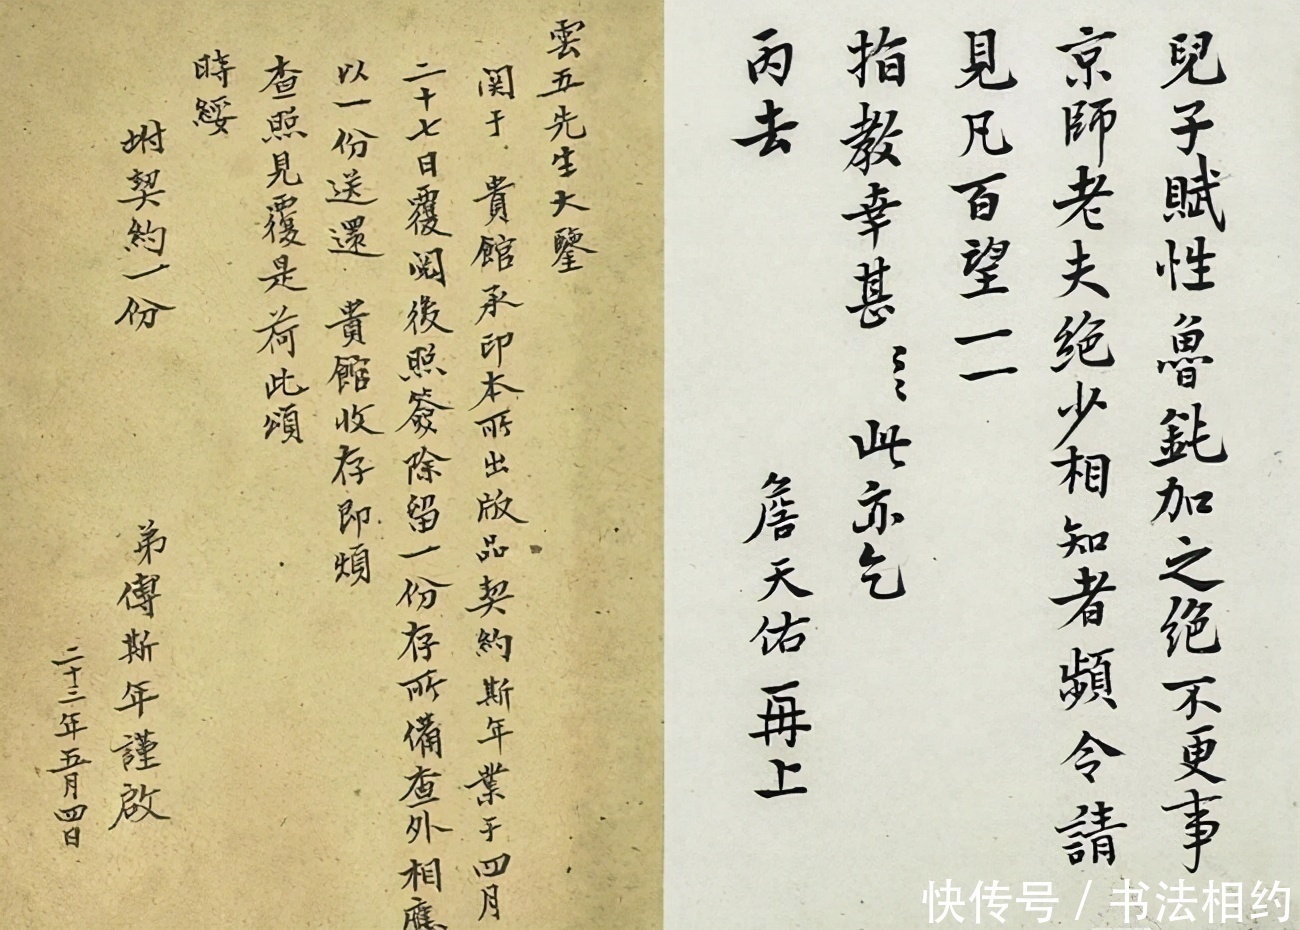 雲五先生大鑒
関于 貴館承印本所出版品契約斯年業于四月
二十七日覆閲後照簽除留一份存所備查外相應
以一份送還 貴館收存即煩
查照見覆是荷此頌
時綏
坿契約一份
弟傅斯年謹啟
二十三年五月四日
兒子賦性魯鈍加之絶不更事
京師老夫絶少相知者頻令請
見凡百望一一
指教幸甚〻〻此亦乞
丙去
詹天佑再上
快传号 / 书法相约